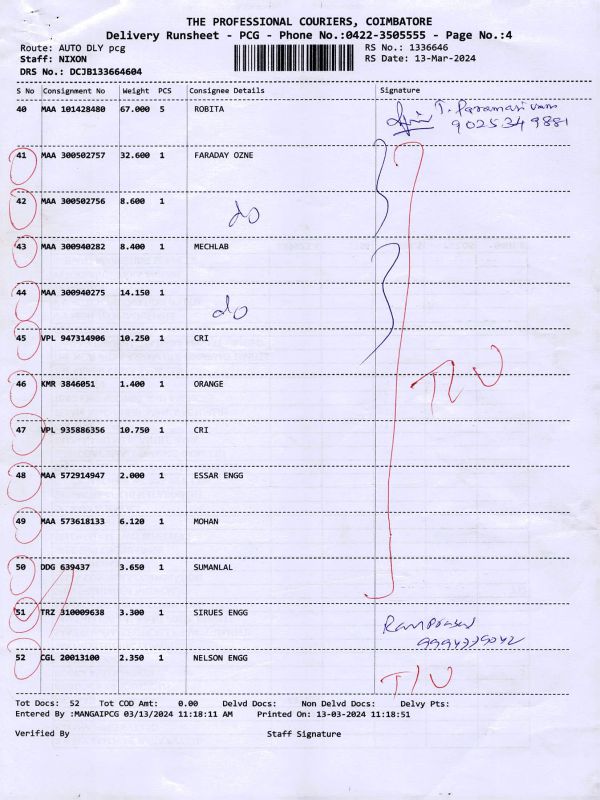 THE PROFESSIONAL COURIERS, COIMBATORE
Delivery Runsheet - PCG - Phone No.:0422-3505555 - Page No.:4
Route: AUTO DLY pcg RS No.: 1336646
Staff: NIXON RS Date: 13-Mar-2024
DRS No.: DCJB133664604
S No Consignment No Weight PCS Consignee Details Signature
40 MAA 101428480 67.000 5 ROBITA T. Paramasivam
9025349881
41 MAA 300502757 32.600 1 FARADAY OZNE
42 MAA 300502756 8.600 1 do
43 MAA 300940282 8.400 1 MECHLAB
44 MAA 300940275 14.150 1 do
45 VPL 947314906 10.250 1 CRI
46 KMR 3846051 1.400 1 ORANGE
T/U
47 VPL 935886356 10.750 1 CRI
48 MAA 572914947 2.000 1 ESSAR ENGG
49 MAA 573618133 6.120 1 MOHAN
50 DDG 639437 3.650 1 SUMANLAL
51 TRZ 310009638 3.300 1 SIRUES ENGG Ramprasad
52 CGL 20013100 2.350 1 NELSON ENGG T/U
Tot Docs: 52 Tot COD Amt: 0.00 Delvd Docs: Non Delvd Docs: Delvy Pts:
Entered By :MANGAIPCG 03/13/2024 11:18:11 AM Printed On: 13-03-2024 11:18:51
Verified By Staff Signature